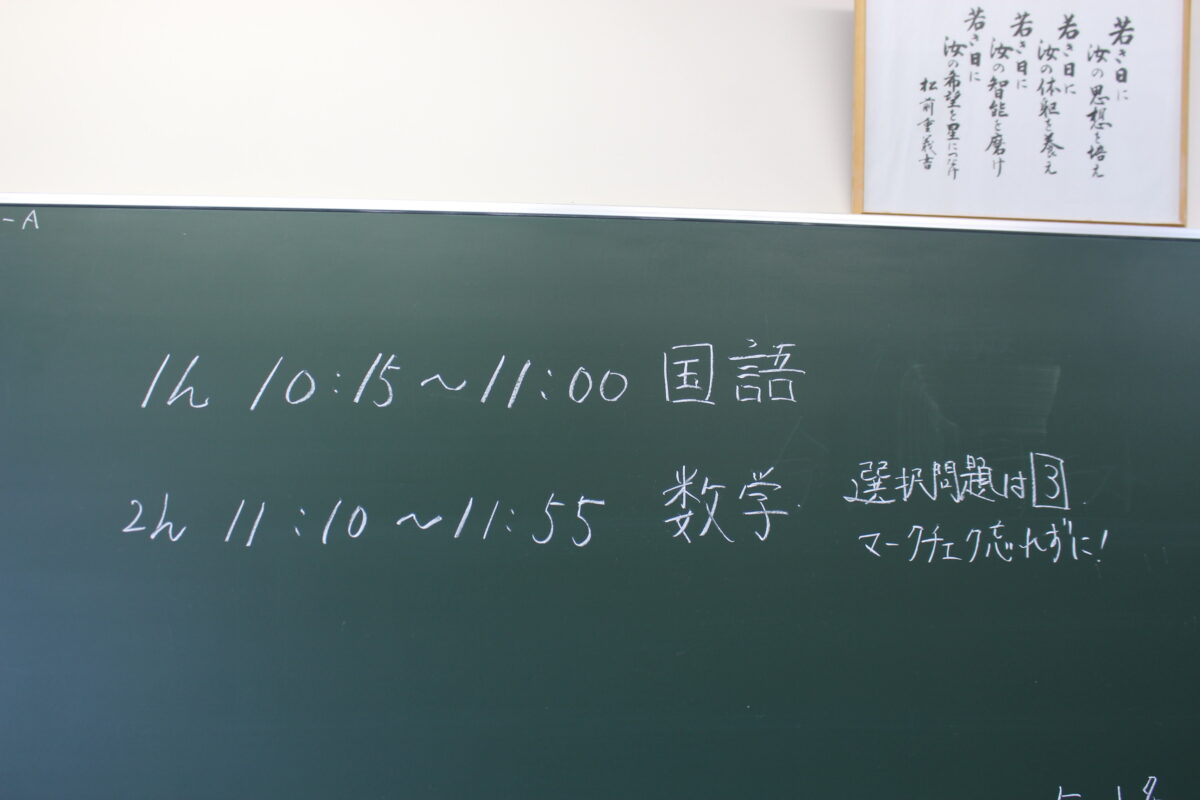 若き日に
汝の思想を培え
若き日に
汝の体躯を養え
若き日に
汝の智能を磨け
若き日に
汝の希望を星につなげ
松前重義吉
-A
1h 10:15~11:00 国語
2h 11:10~11:55 数学
選択問題は3
マークチェク忘れずに!